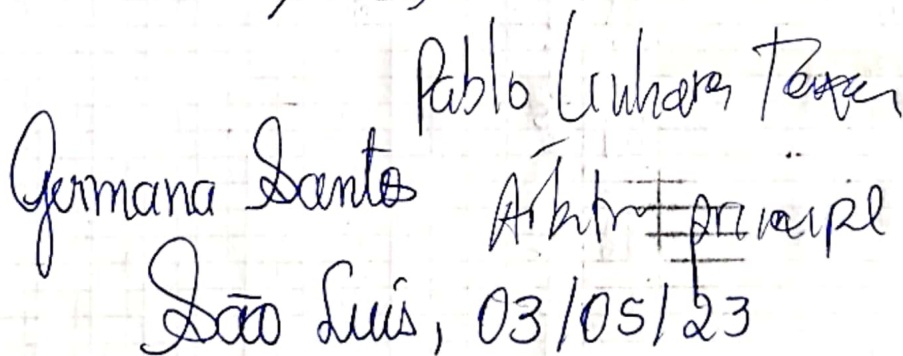 Pablo Linhares Teixeira
Germana Santos
Árbitro principal
São Luís, 03/05/23